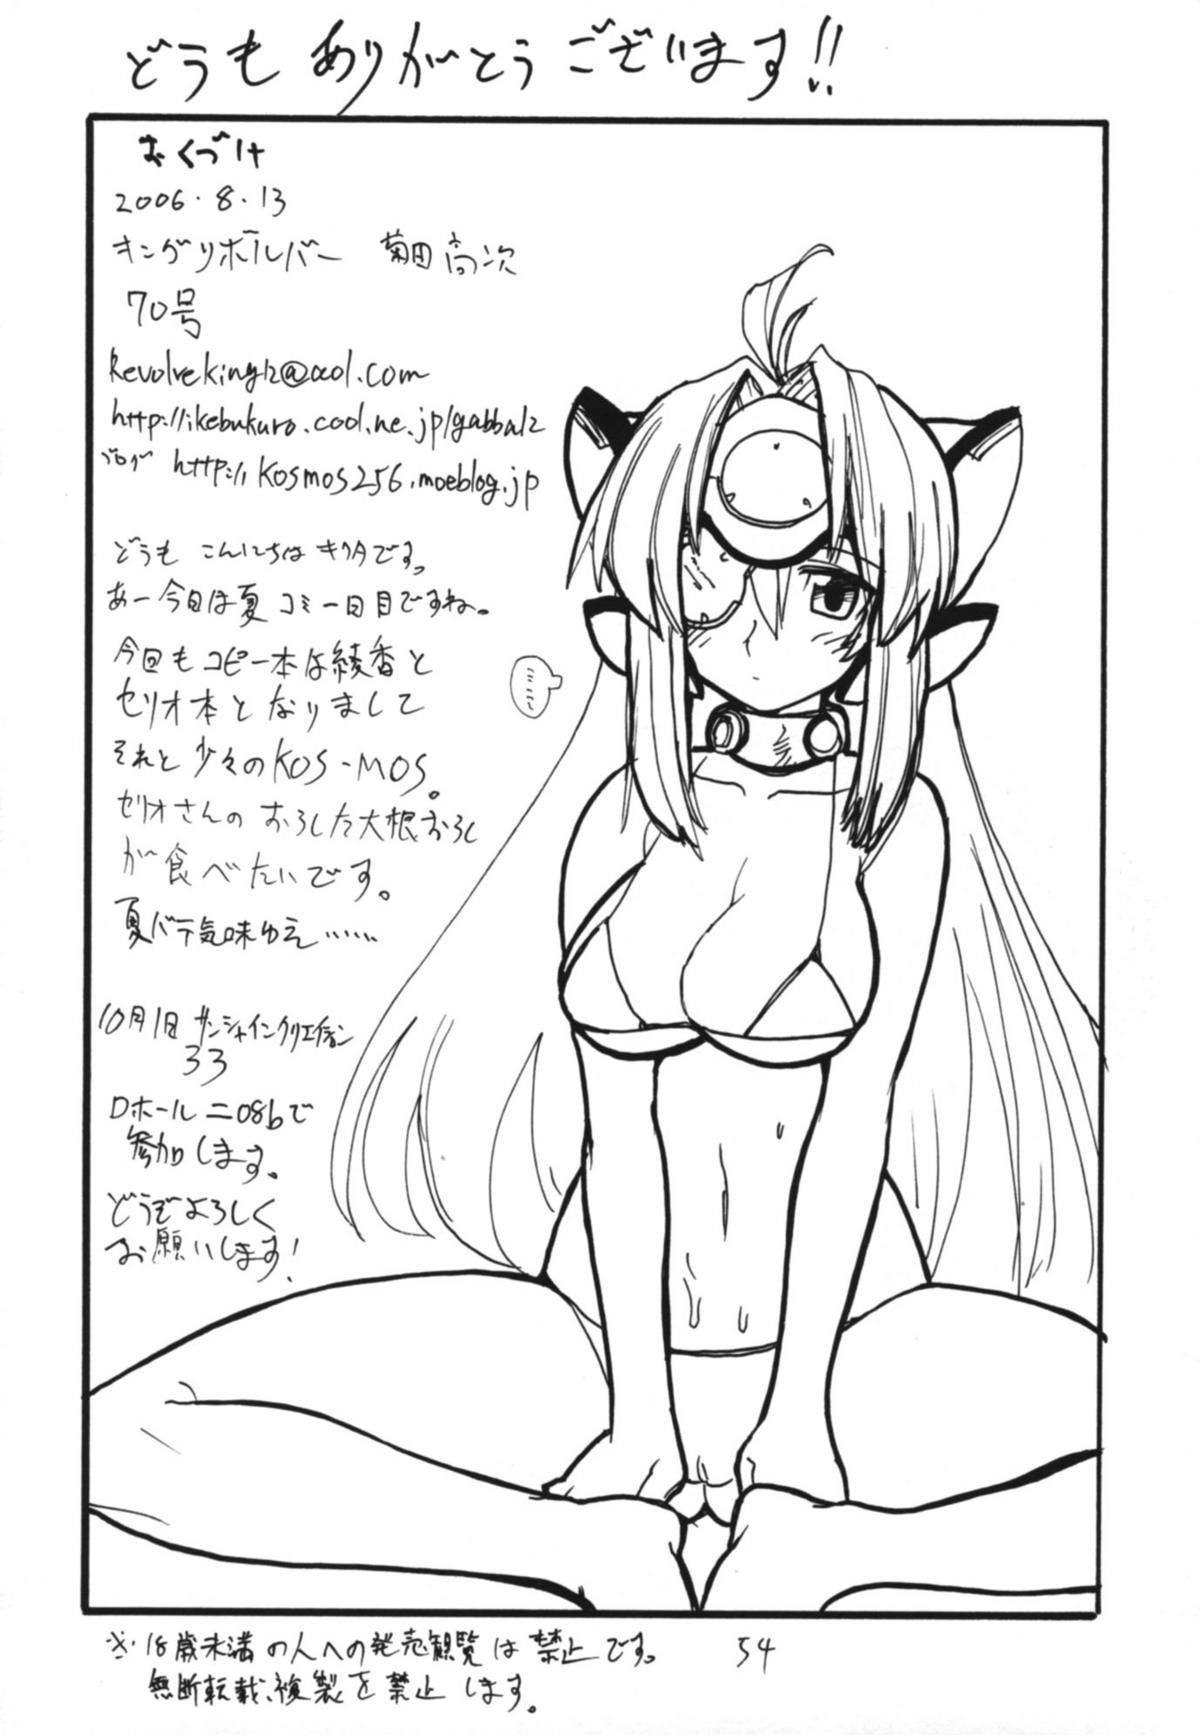 どうも ありがとう ございます!!
おくづけ
2006.8.13
キングリボルバー 菊田 高次
70号
Revolveking12@aol.com
http://ikebukuro.cool.ne.jp/gabba12
ブログ http://kosmos256.moeblog.jp
どうも こんにちは キクタです。
あー今日は夏コミ一日目ですね。
今回もコピー本は綾香と
セリオ本となりまして
それと少々のKOS-MOS。
セリオさんの おろした大根おろし
が食べたいです。
夏バテ気味ゆえ……
10月1日 サンシャインクリエイション
33
Dホール ニ08bで
参加します。
どうぞよろしく
お願いします!
……
※・18歳未満の人への発売観覧は禁止です。
無断転載、複製を禁止します。
54